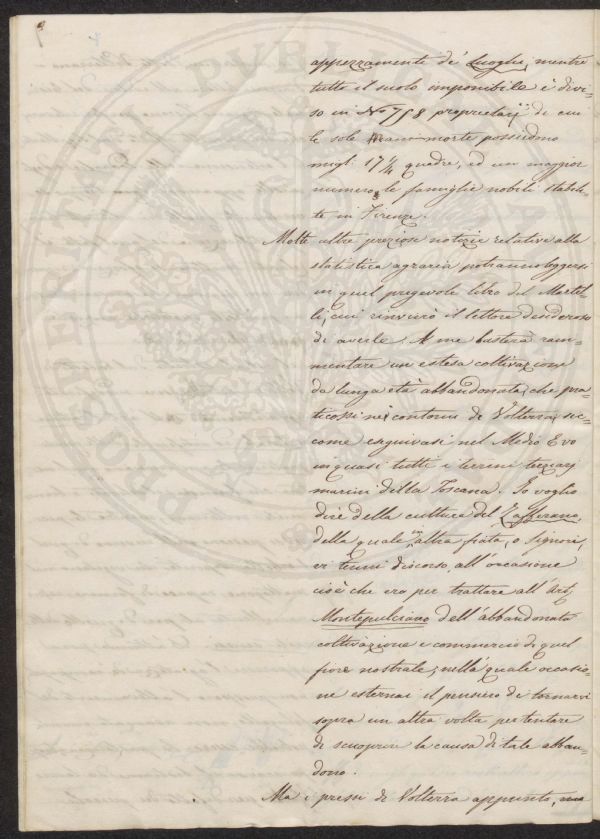 appezzamente de' Luoghi; mentre
tutto il suolo imponibile è divi=
so in N.o 758 proprietarj di cui
le sole Mani-morte possiedono
migl: 17 1/4 quadre, ed un maggior
numero le famiglie nobili stabili=
te in Firenze.
Molte altre preziose notizie relative alla
statistica agraria potranno leggersi
in quel pregevole libro del
cui rinvierò il lettore desideroso
di averle. A me basterà ram=
mentare un estesa coltivazione
da lunga età abbandonata, che pra=
ticossi nei contorni di Volterra, sic=
come eseguivasi nel Medio Evo
in quasi tutti i terreni terziarj
marini della Toscana. Io voglio
dire della cultura del Zafferano,
della quale in altra fiata, o Signori,
vi tenni discorso, all'occasione
cioè che ero per trattare all'Art.
Montepulciano dell'abbandonata
coltivazione e commercio di quel
fiore nostrale; nella quale occasio=
ne esternai il pensiero di tornarvi
sopra un altra volta per tentare
di scuoprire la causa di tale abban=
dono.
Ma i pressi di Volterra appunto,
PROPRIETATI PUBLICAE